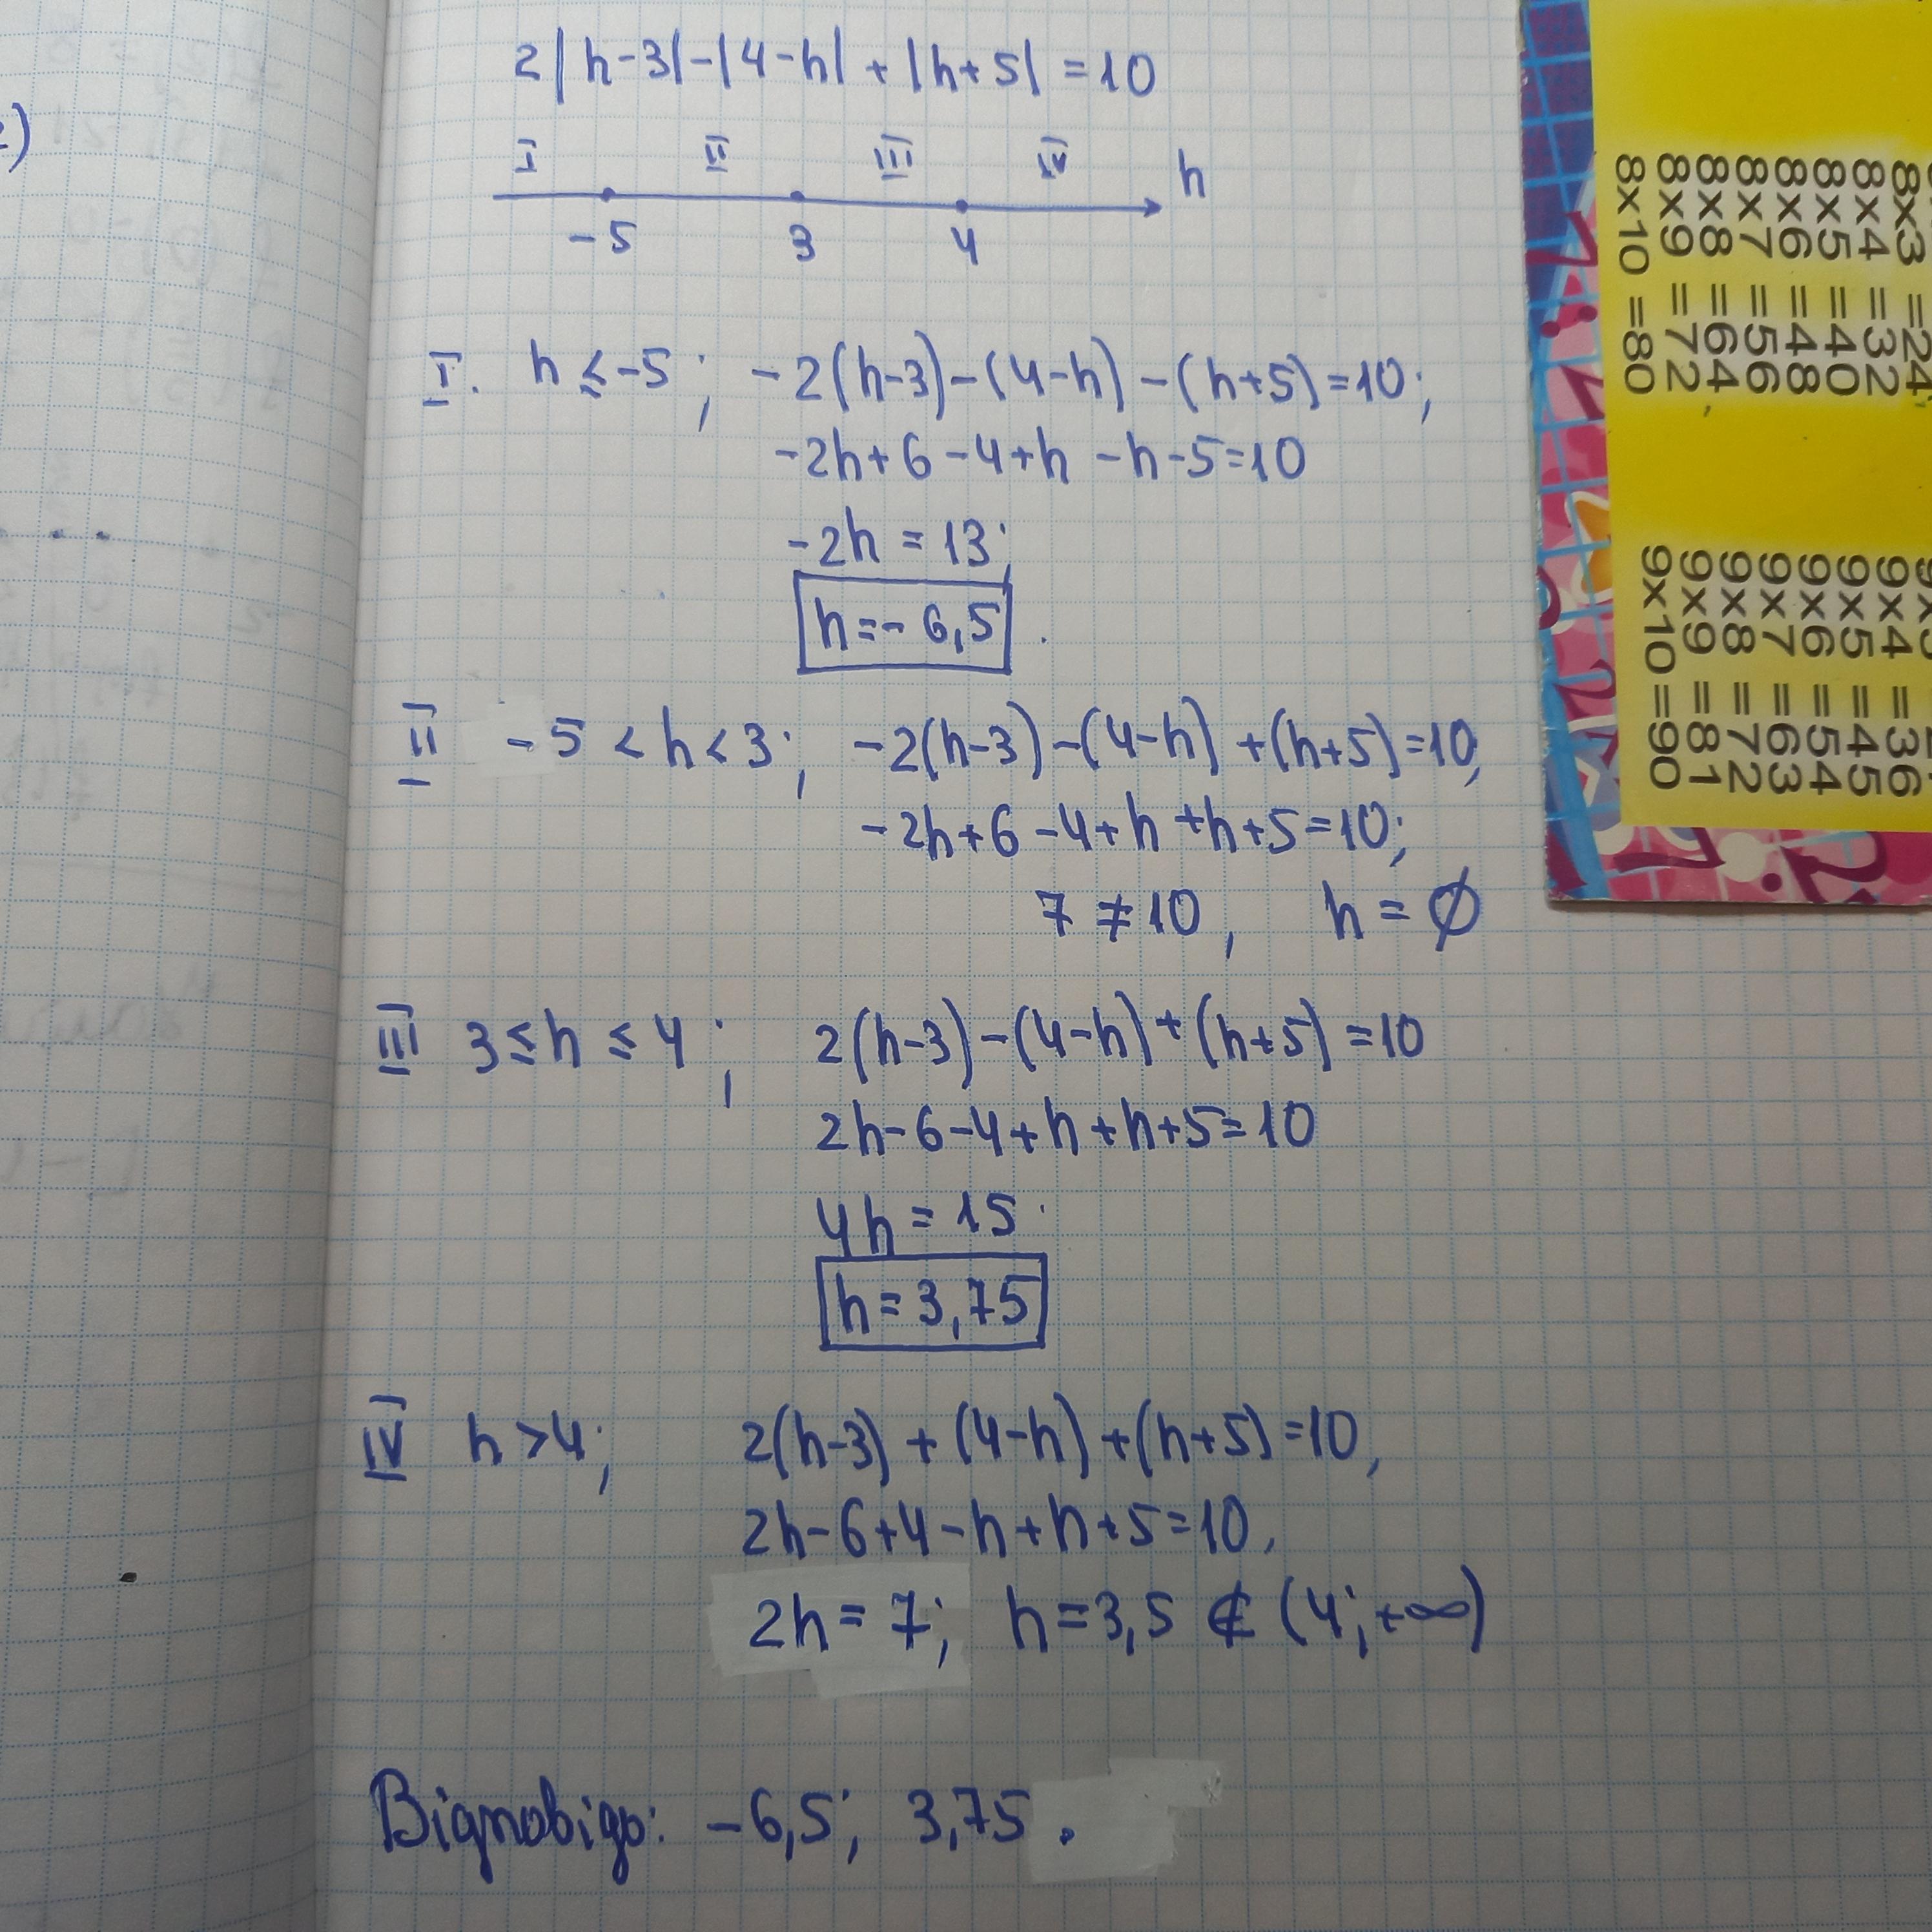 2|h-3|-|4-h|+|h+5|=10
I II III IV h
-5 3 4
I. h≤-5; -2(h-3)-(4-h)-(h+5)=10;
-2h+6-4+h-h-5=10
-2h=13;
h=-6,5.
II -5<h<3; -2(h-3)-(4-h)+(h+5)=10,
-2h+6-4+h+h+5=10;
7≠10, h=∅
III 3≤h≤4; 2(h-3)-(4-h)+(h+5)=10
2h-6-4+h+h+5=10
4h=15.
h=3,75
IV h>4; 2(h-3)+(4-h)+(h+5)=10,
2h-6+4-h+h+5=10,
2h=7; h=3,5∉(4;+∞)
Відповідь: -6,5; 3,75.
8x3 =24
8x4 =32
8x5 =40
8x6 =48
8x7 =56
8x8 =64
8x9 =72
8x10 =80
9x4 =36
9x5 =45
9x6 =54
9x7 =63
9x8 =72
9x9 =81
9x10 =90